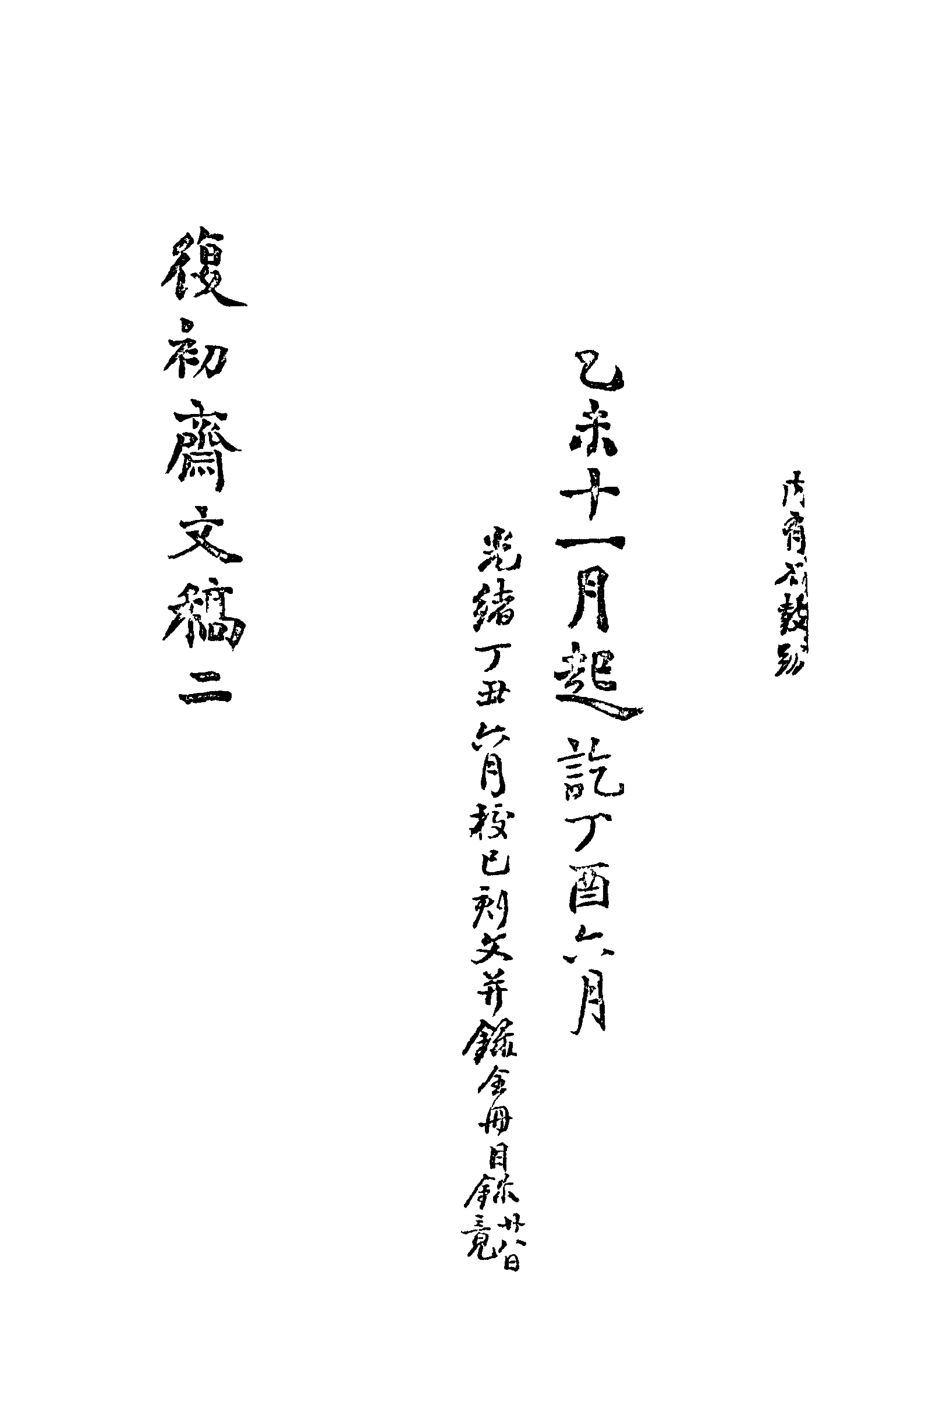 內有石鼓跋
乙未十一月起訖丁酉六月
光緒丁丑六月校已刻文并錄全冊目錄竟廿八日
復初齋文稿二